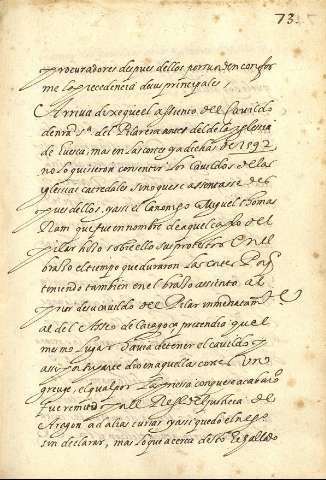 73.
procuradores despues dellos por un en confor
me lo precedencia de sus principales
Arriva dixe que el assiento del Cavildo
de nra Sa del Pilar era antes del de la Yglesia
de Huesca, mas en las cortes ya dichas de 1592
no lo quisieron consentir los Cavildos de las
Yglesias catredales sino que se assentasse des
pues dellos, y assi el Canonigo Miguel Thomas
que fue en nombre de aquel cavildo del
Pilar hizo sobre ello su protesto en el
brasso el tiempo que duraron las cortes Por q
teniendo tambien en el brasso assiento el
Prior de su cavildo del Pilar inmediatam.te
al del Asseo de Caragoça pretendio que el
mesmo lugar havia de tener el cavildo, y
assi por su parte dio en aquellas cortes un
greuge, el qual por la priessa con que se acabaron
fue remitido al Justicia de
Aragon ad alias curias y assi quedo el nego
sin declarar, mas lo que acerca desto he hallado